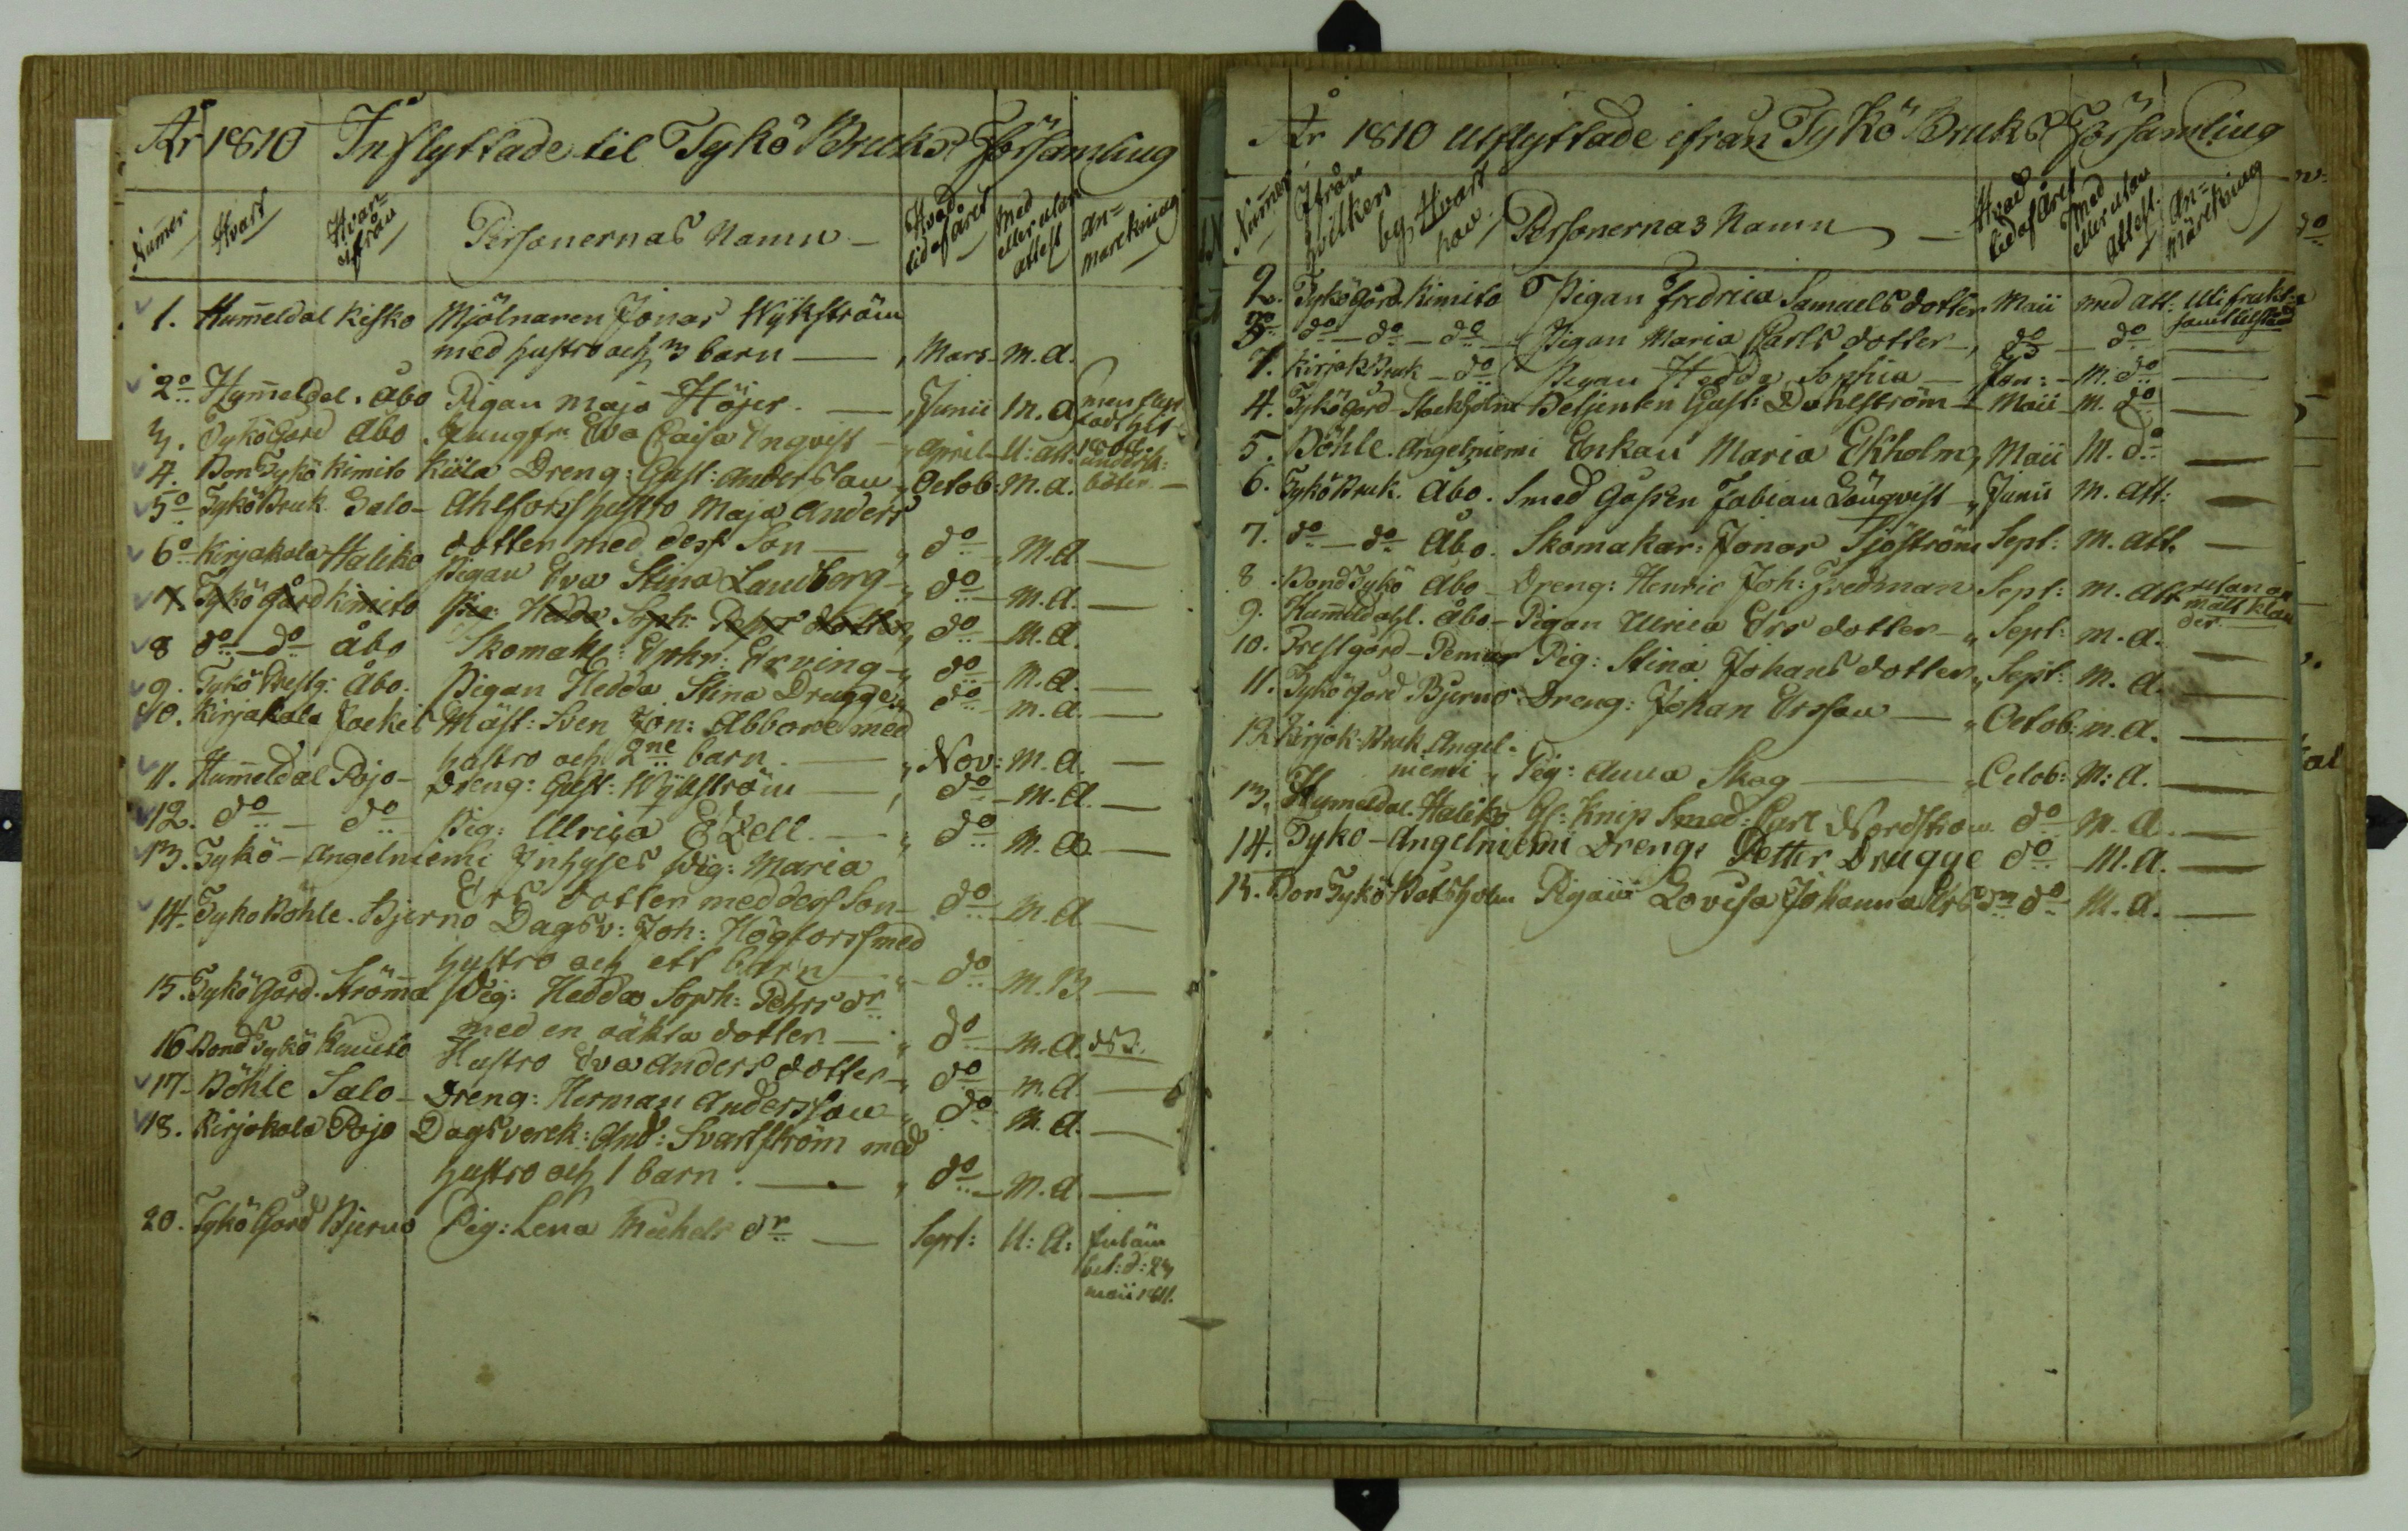 År 1810 Inflyttade til Tykö Bruks Församling
Numer Hvart Hvarifrån Personernas Namn Hvad tid af året Med eller utan attest Anmarckning
1. Hum̄eldal Kisko Mjölnaren Jonas Wykström
med hustro och 3 barn — Mars — m. a.
2o Hym̄eldal. Åbo Pigan Maja Höjer. — Junii m. a.
3. Tykö Gård Åbo. Jungfr. Eva Caisa Enqvist — April — U: att:
4. Bon Tykö Kimito Kiila Dreng: Gust: Andersson Octob: m. a.
5o Tykö Bruk Salo — Ahlfors hustro Maja Anders
dotter med dess Son — do — M. a —
6o Kirjakala Haliko Pigan Eva Stina Landborg — do — m. a. —
7. Tykö Gård Kimito Pig: Hedda Soph: Pehrs dotter do — M. a.
8 do — do Åbo Skomak: Ephr: Erving — do — m. a. —
9. Tykö Prestg: Åbo. Pigan Hedda Stina Drugge do m. a. —
10. Kirjakala Jockis Mäst: Sven Jon: Abbore med
hustro och 2ne barn — Nov: m. a. —
11. Hum̄eldal Pojo — Dreng: Gust: Wykström — do — m. a. —
12. do — do — Pig: Ulrica Edell. — do m. a. —
13. Tykö — Angelniemi Inhyses Pig: Maria
Ers dotter med dess Son — do — m. a. —
14. Tyko Böhle. Bjerno Dagsv: Joh: Högfors med
hustro och ett barn — do — m. B. —
15. Tykö Gård. Ström̄a Pig: Hedda Soph: Pehrs dr
med en oäkta dotter — do — m. a.
16 Bond Tykö Kimito Hustro Eva Anders dotter — do — m. a. —
17. Böhle Salo — Dreng: Herman Andersson do m. a. —
18. Kirjakala Pojo Dagsverck: And: Svartström med
hustro och 1 barn. — do — m. a. —
20. Tykö Gård Bjerno Pig: Lena Michels dr — Sept: U: a:
bet: d: 23
maii 1811.
År 1810 Utflyttade ifrån Tykö Bruks Församling
Num̄er Ifrån hvilken by Hvart Personernas Namn — Hvad tid af året Med eller utan attest. Anmärckning
2. Tykö Gård. Kimito Pigan Fredrica Samuels dotter Maii med att:
3. do — do — do — Pigan Maria Carls dotter —, do — do —
1. Kirjak Bruk — do Pigan Hedda Sophia — Jan: — M. do —
4. Tykö Gård — Stockholm Betjenten Gust: Dahlström — Maii — M. do —
5. Böhle. Angelniemi Enkan Maria Ekholm, Maii M. do —
6. Tykö Bruk. Åbo. Smed Gossen Fabian Löngvist — Junii M. att: —
7. do — do Åbo. Skomakar: Jonas Sjöström Sept: M. att. —
8. Bond Tykö Åbo — Dreng: Henric Joh: Fredman Sept: m. att
9. Hum̄eldahl. Åbo — Pigan Ulrica Ers dotter — Sept: m. a. —
10. Prestgård — Pemar Pig: Stina Johans dotter Sept: M. a. —
11. Tykö Gård Bjerno Dreng: Johan Ersson — Octob: m. a. —
12. Kirjak: Bruk Angel-
niemi Pig: Anna Skog — Octob: M: a. —
13. Hymeldal. Haliko Gl: Knip Smed: Carl Nordström do — M. a. —
14. Tyko — Angelniemi Dreng: Petter Drugge do — M. a. —
15. Bon Tykö Pigan Lovisa Johanna Ers dr do — M. a. —